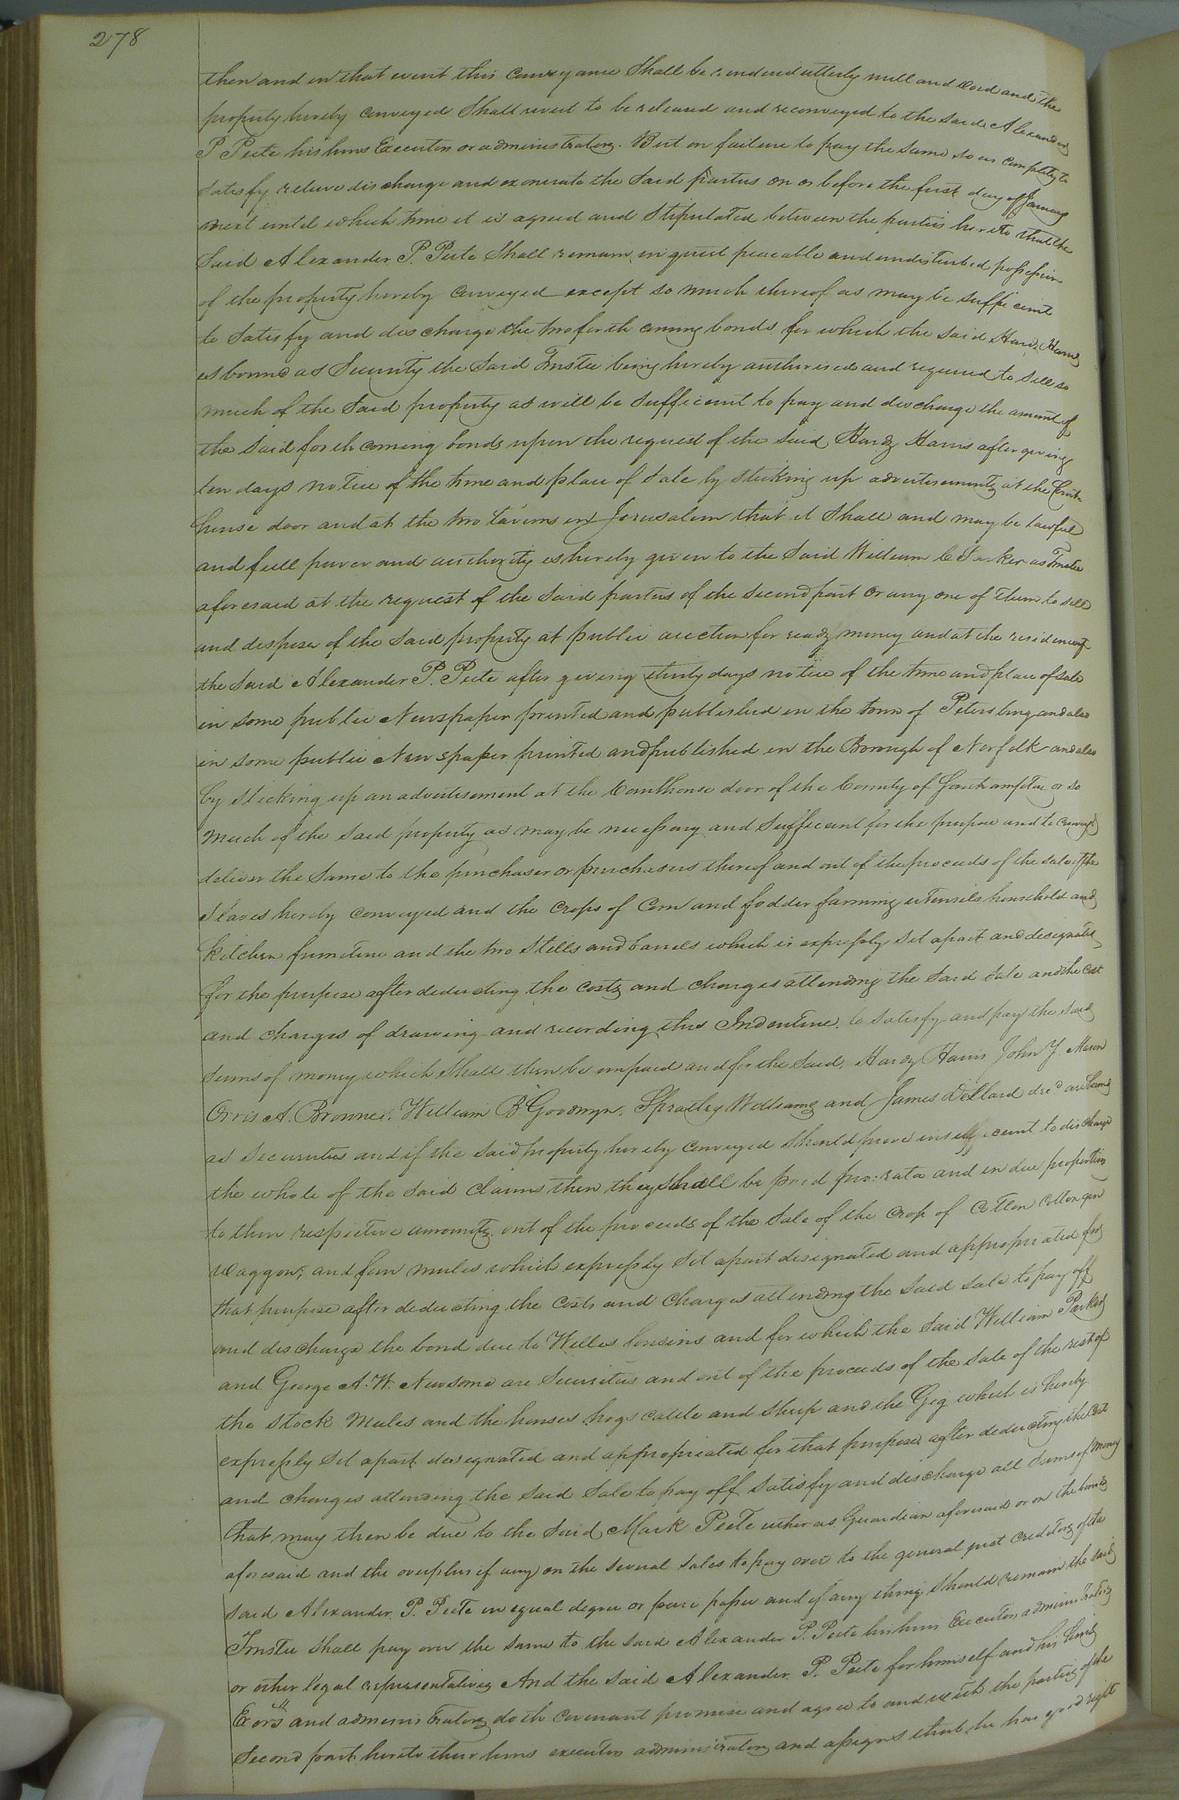 278
then and in that event this conveyance Shall be rendered utterly null and void and the
property hereby conveyed Shall revert to be released and reconveyed to the said Alexander
P Peete his heirs Executors or administrators. But on failure to pay the same so as completely to
satisfy relieve discharge and exonerate the said parties on or before the first day of January
next until which time it is agreed and Stipulated between the parties hereto that the
Said Alexander P. Peete Shall remain in quiet peaceable and undisturbed possession
of the property hereby conveyed except so much thereof as may be sufficient
to Satisfy and discharge the two forth coming bonds for which the said Hardy Harris
is bound as Security the Said Trustee being hereby authorised and required to sell so
much of the Said property as will be sufficient to pay and discharge the amount of
the said forth coming bonds upon the request of the said Hardy Harris after giving
ten days notice of the time and place of Sale by sticking up advertisements at the Court
house door and at the two taverns in Jerusalem that it Shall and may be lawful
and full power and authority is hereby given to the Said William C Parker as Trustee
aforesaid at the request of the Said parties of the second part or any one of them to sell
and dispose of the Said property at public auction for ready money and at the residence of
the Said Alexander P. Peete after giving thirty days notice of the time and place of sale
in some public Newspaper printed and published in the town of Petersburg and also
in some public Newspaper printed and published in the Borough of Norfolk and also
by sticking up an advertisement at the Courthouse door of the County of Southampton or so
much of the said property as may be necessary and sufficient for the purpose and to convey &
deliver the Same to the purchaser or purchasers thereof and out of the proceeds of the sale of the
Slaves hereby conveyed and the crops of Corn and fodder farming utensils household and
kitchen furniture and the two Stills and barrels which is expressly set apart and designated
for the purpose after deducting the costs and charges attending the Said sale and the cost
and charges of drawing and recording this Indenture. to satisfy and pay the said
sums of money which Shall then be unpaid and for the Said Hardy Harris John Y. Mason
Orris A. Browne. William B Goodwyn. Spratley Williams and James Dillard decd are bound
as securities and if the said property hereby conveyed should prove insufficient to discharge
the whole of the said claims then they Shall be paid pro-rata and in due proportion
to their respective amounts out of the proceeds of the Sale of the crop of cotton cotton gin
waggon, and four mules which expressly set apart designated and appropriated for
that purpose after deducting the costs and charges attending the said sale to pay off
and discharge the bond due to Willis and for which the said William Parker
and George A. W. Newsome are Securities and out of the proceeds of the Sale of the rest of
the stock mules and the horses hogs cattle and sheep and the Gig which is hereby
expressly set apart designated and appropriated for that purpose after deducting the cost
and charges attending the said sale to pay off satisfy and discharge all sums of money
that may then be due to the said Mark Peete either as Guardian aforesaid or on the bond
aforesaid and the overplus if any on the several sales to pay over to the general just creditors of the
said Alexander P. Peete in equal degree or pari passu and if any thing should remain the said
Trustee shall pay over the same to the said Alexander P. Peete his heirs Executors administrators
or other legal representatives And the said Alexander P. Peete for himself and his heirs
Exors and administrators doth covenant promise and agree to and with the parties of the
Second part hereto their heirs executors administrators and assigns that he has good right